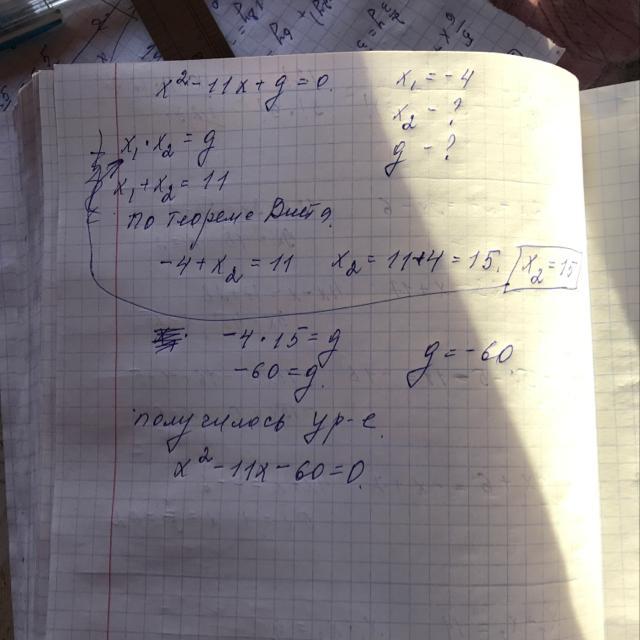 x² - 11x + g = 0. x₁ = -4
x₂ - ?
g - ?
x₁ · x₂ = g
x₁ + x₂ = 11
по теореме Виета.
-4 + x₂ = 11 x₂ = 11 + 4 = 15. x₂ = 15
-4 · 15 = g
-60 = g. g = -60
получилось ур-е.
x² - 11x - 60 = 0.